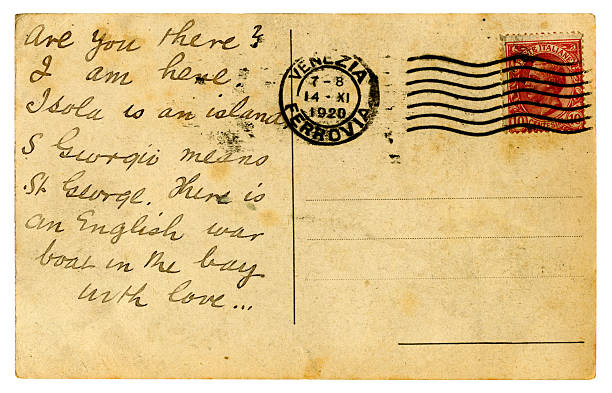 Are you there?
I am here
Isola is an island
S Georgio means
St George. There is
an English war
boat in the bay
with love...
VENEZIA
7-8
14-XI
1920
FERROVIA
POSTE ITALIANE
10
10